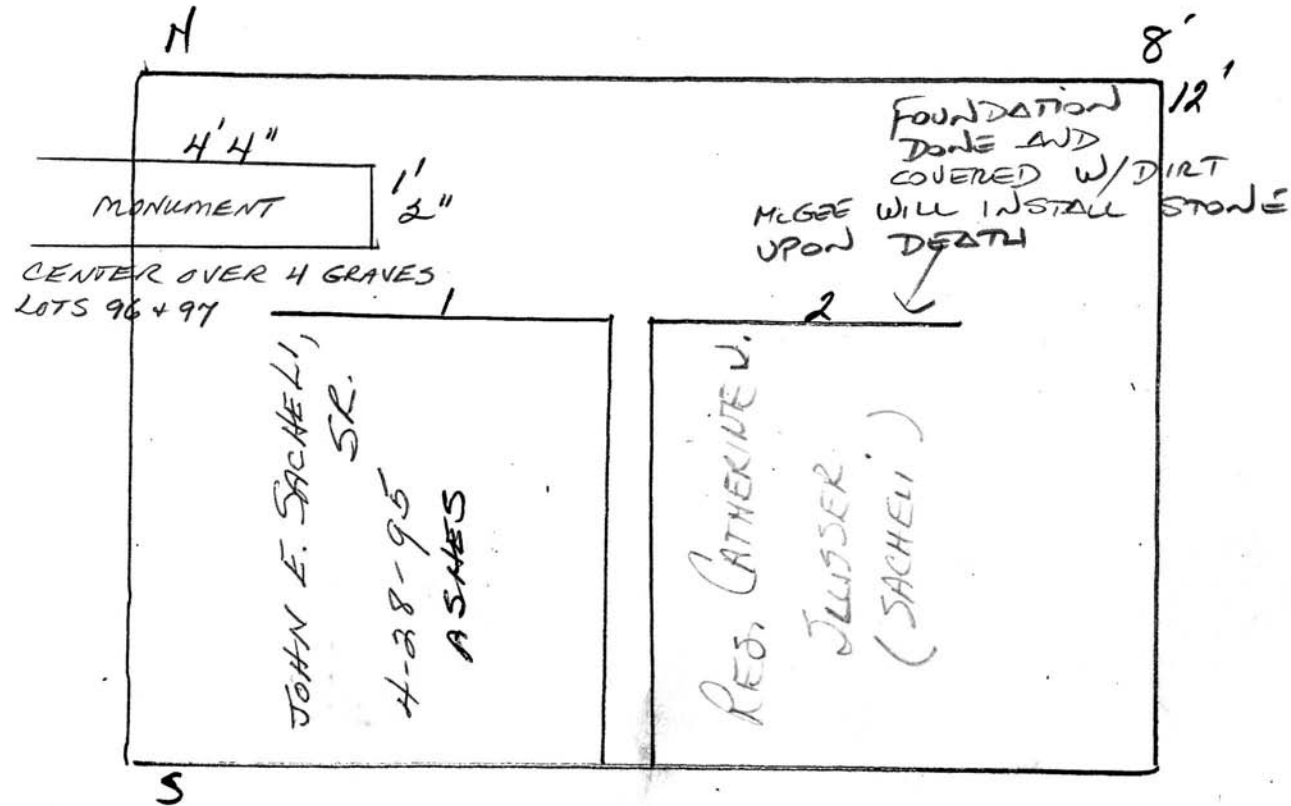 N
8'
12'
4' 4"
1'
2"
MONUMENT
CENTER OVER 4 GRAVES
LOTS 96 + 97
FOUNDATION
DONE AND
COVERED W/DIRT
McGEE WILL INSTALL STONE
UPON DEATH
1
JOHN E. SACHELI,
SR.
4-28-95
ASHES
2
RES. CATHERINE
(SACHELI)
S